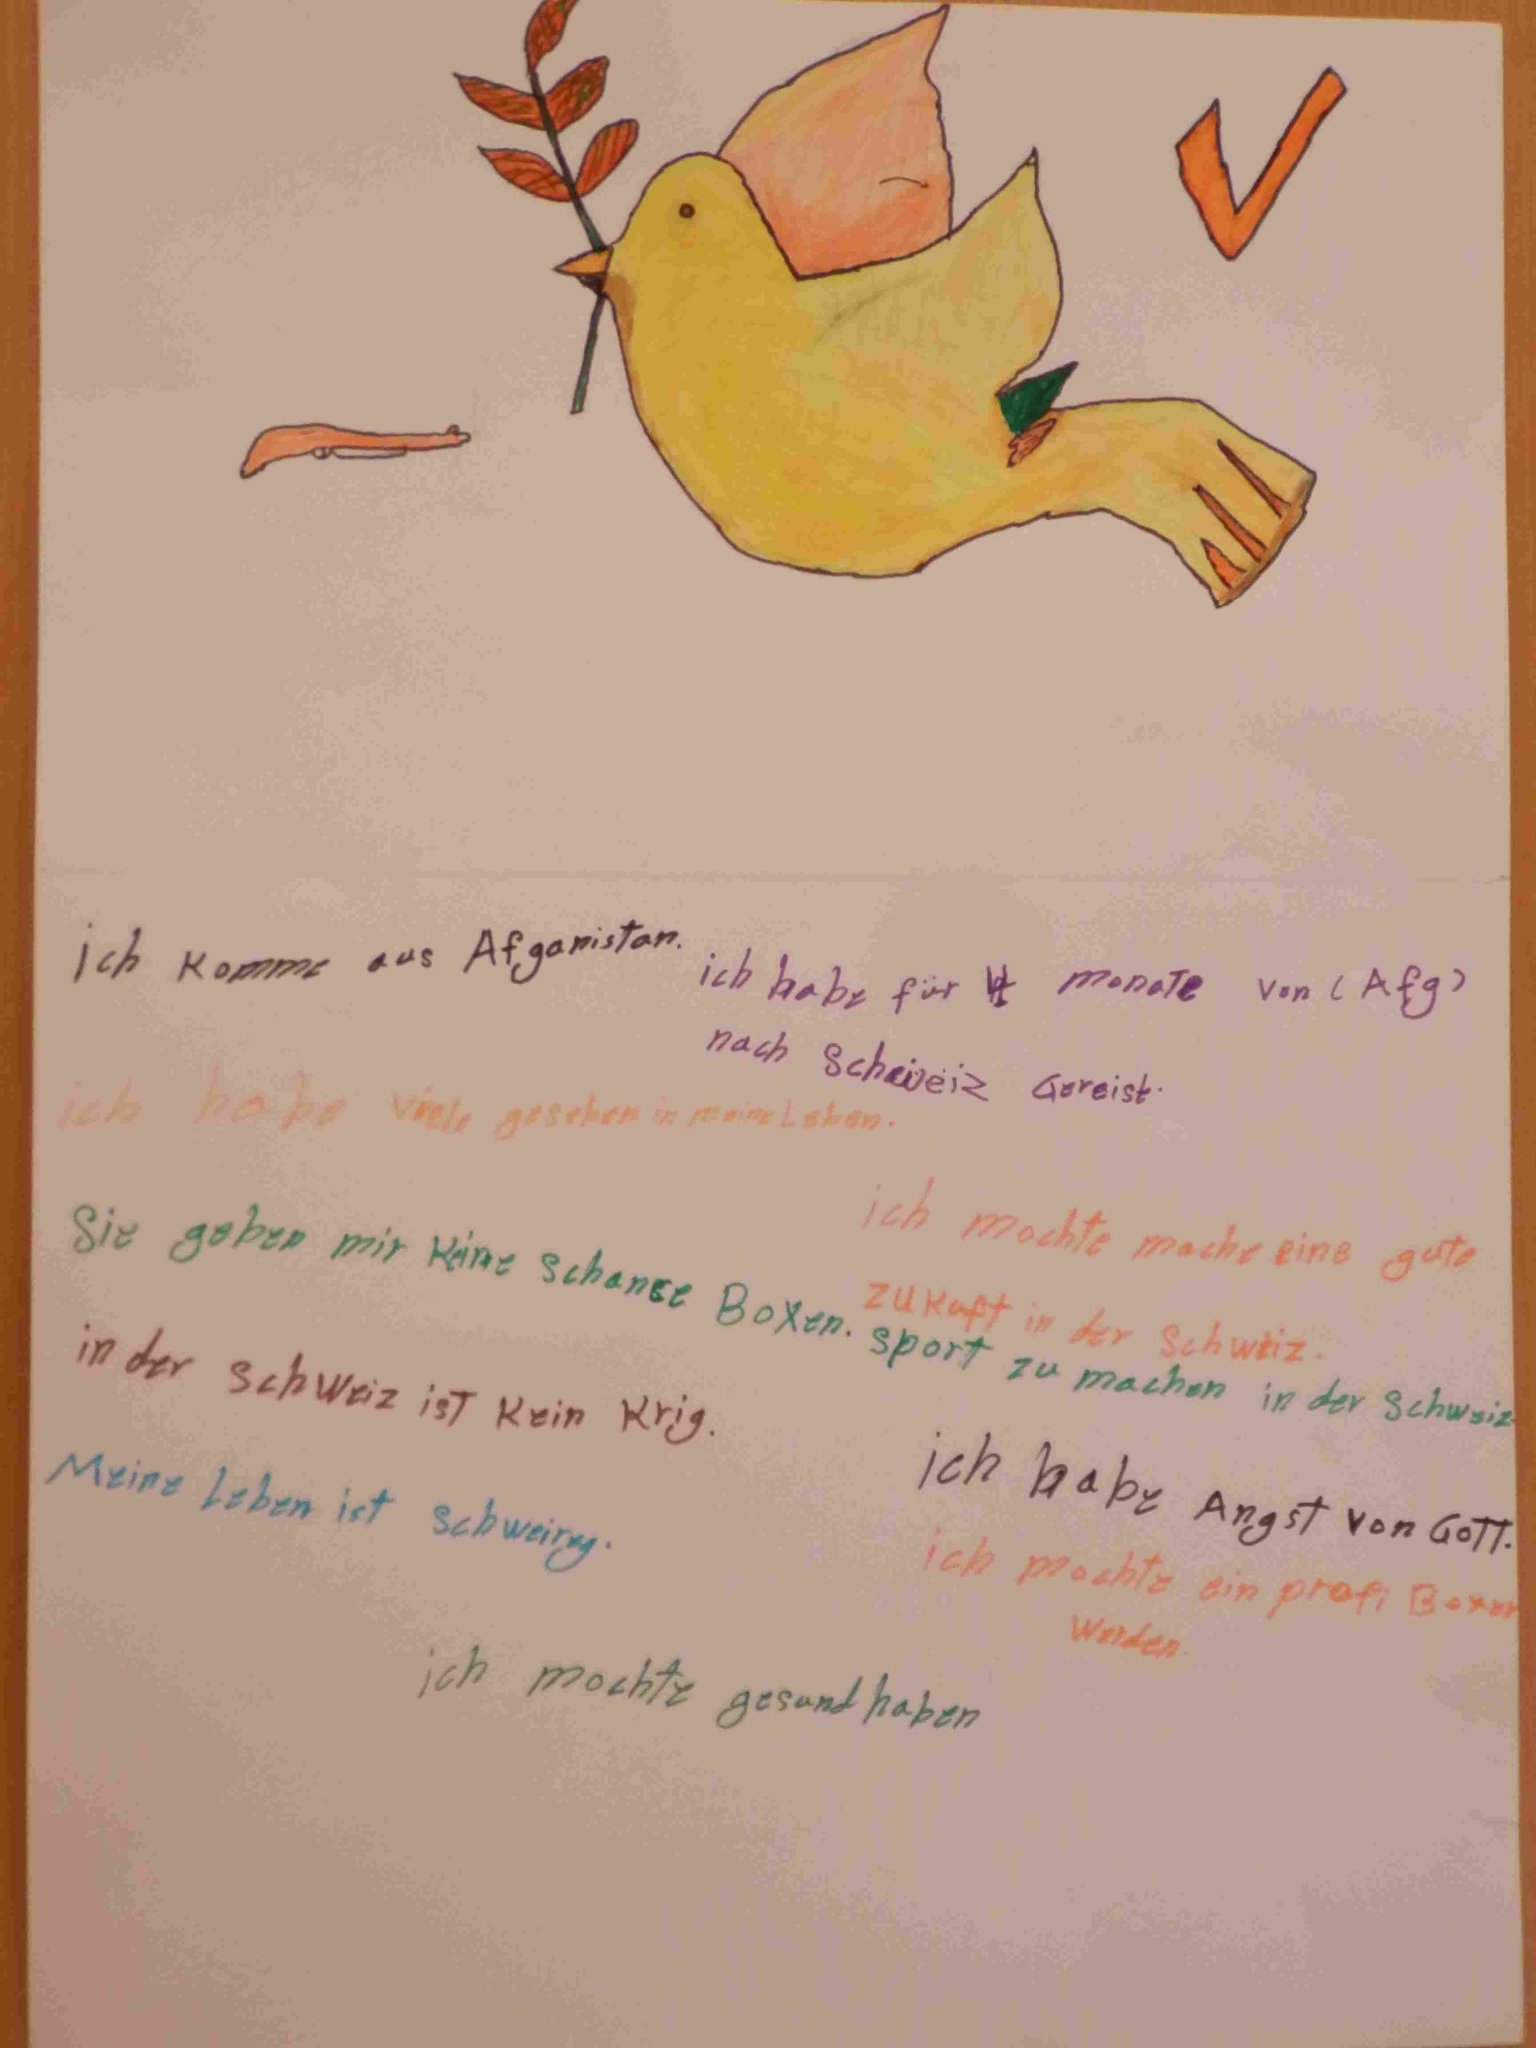 ich komme aus Afganistan.
ich habe für 4 monate von (Afg)
nach Schweiz Gereist.
ich habe viele gesehen in meine Leben.
Sie geben mir keine schanse Boxen. sport zu machen in der Schweiz
ich mochte mache eine gute
zukuft in der Schweiz.
in der Schweiz ist kein krig.
ich habe Angst von Gott.
Meine Leben ist schweirg.
ich mochte ein profi Boxer
werden.
ich mochte gesund haben